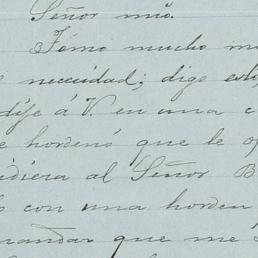 Señor mio.
Tómo mucho in
necesidad; digo esto
dije á V. en una c
e hordenó que le
idiera al Señor B
con una horden
mandar que me